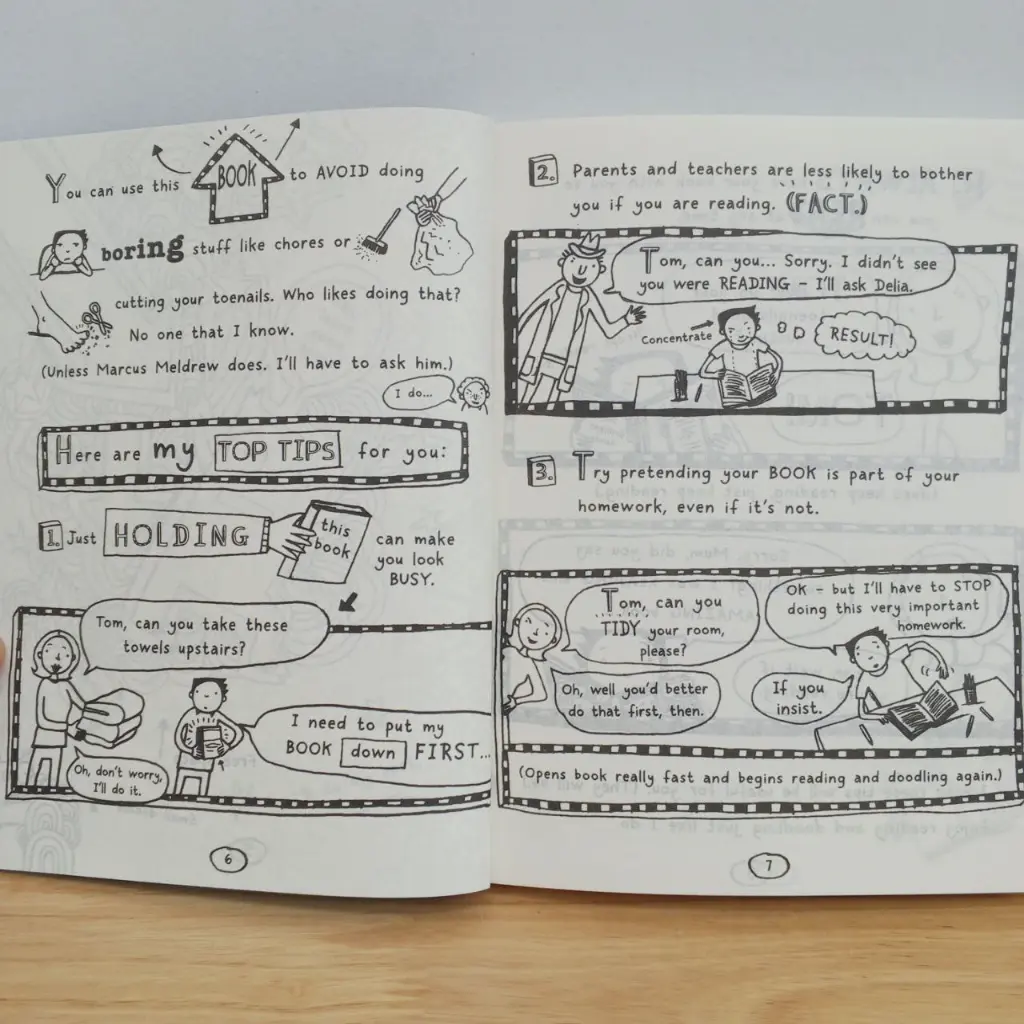 You can use this BOOK to AVOID doing
boring stuff like chores or
cutting your toenails. Who likes doing that?
No one that I know.
(Unless Marcus Meldrew does. I'll have to ask him.)
I do...
Here are my TOP TIPS for you:
1. Just HOLDING this book can make
you look
BUSY.
Tom, can you take these
towels upstairs?
I need to put my
BOOK down FIRST...
Oh, don't worry,
I'll do it.
6
2. Parents and teachers are less likely to bother
you if you are reading. (FACT.)
Tom, can you... Sorry. I didn't see
you were READING - I'll ask Delia.
Concentrate
RESULT!
3. Try pretending your BOOK is part of your
homework, even if it's not.
Tom, can you
TIDY your room,
please?
OK - but I'll have to STOP
doing this very important
homework.
Oh, well you'd better
do that first, then.
If you
insist.
(Opens book really fast and begins reading and doodling again.)
7